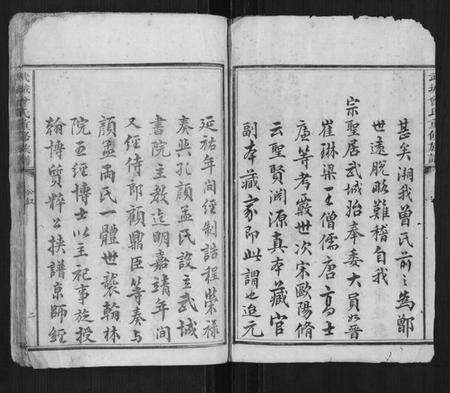 甚矣溯我曾氏前之為鄫
世遠脫略難稽自我
宗聖居武城始奉委大員如晉
崔琳梁王僧儒唐高士
廉等考覈世次宋歐陽脩
云聖賢淵源真本藏官
副本藏家即此謂也迨元
延祐年間經制誥程榮祿
奏與孔顏孟氏設立武城
書院主教迄明嘉靖年間
又經侍郎顧鼎臣等奏与
顏孟兩氏一體世襲翰林
院五經博士以主祀事旋授
翰博質粹公挾譜京師經
武城曾氏重修族譜
二